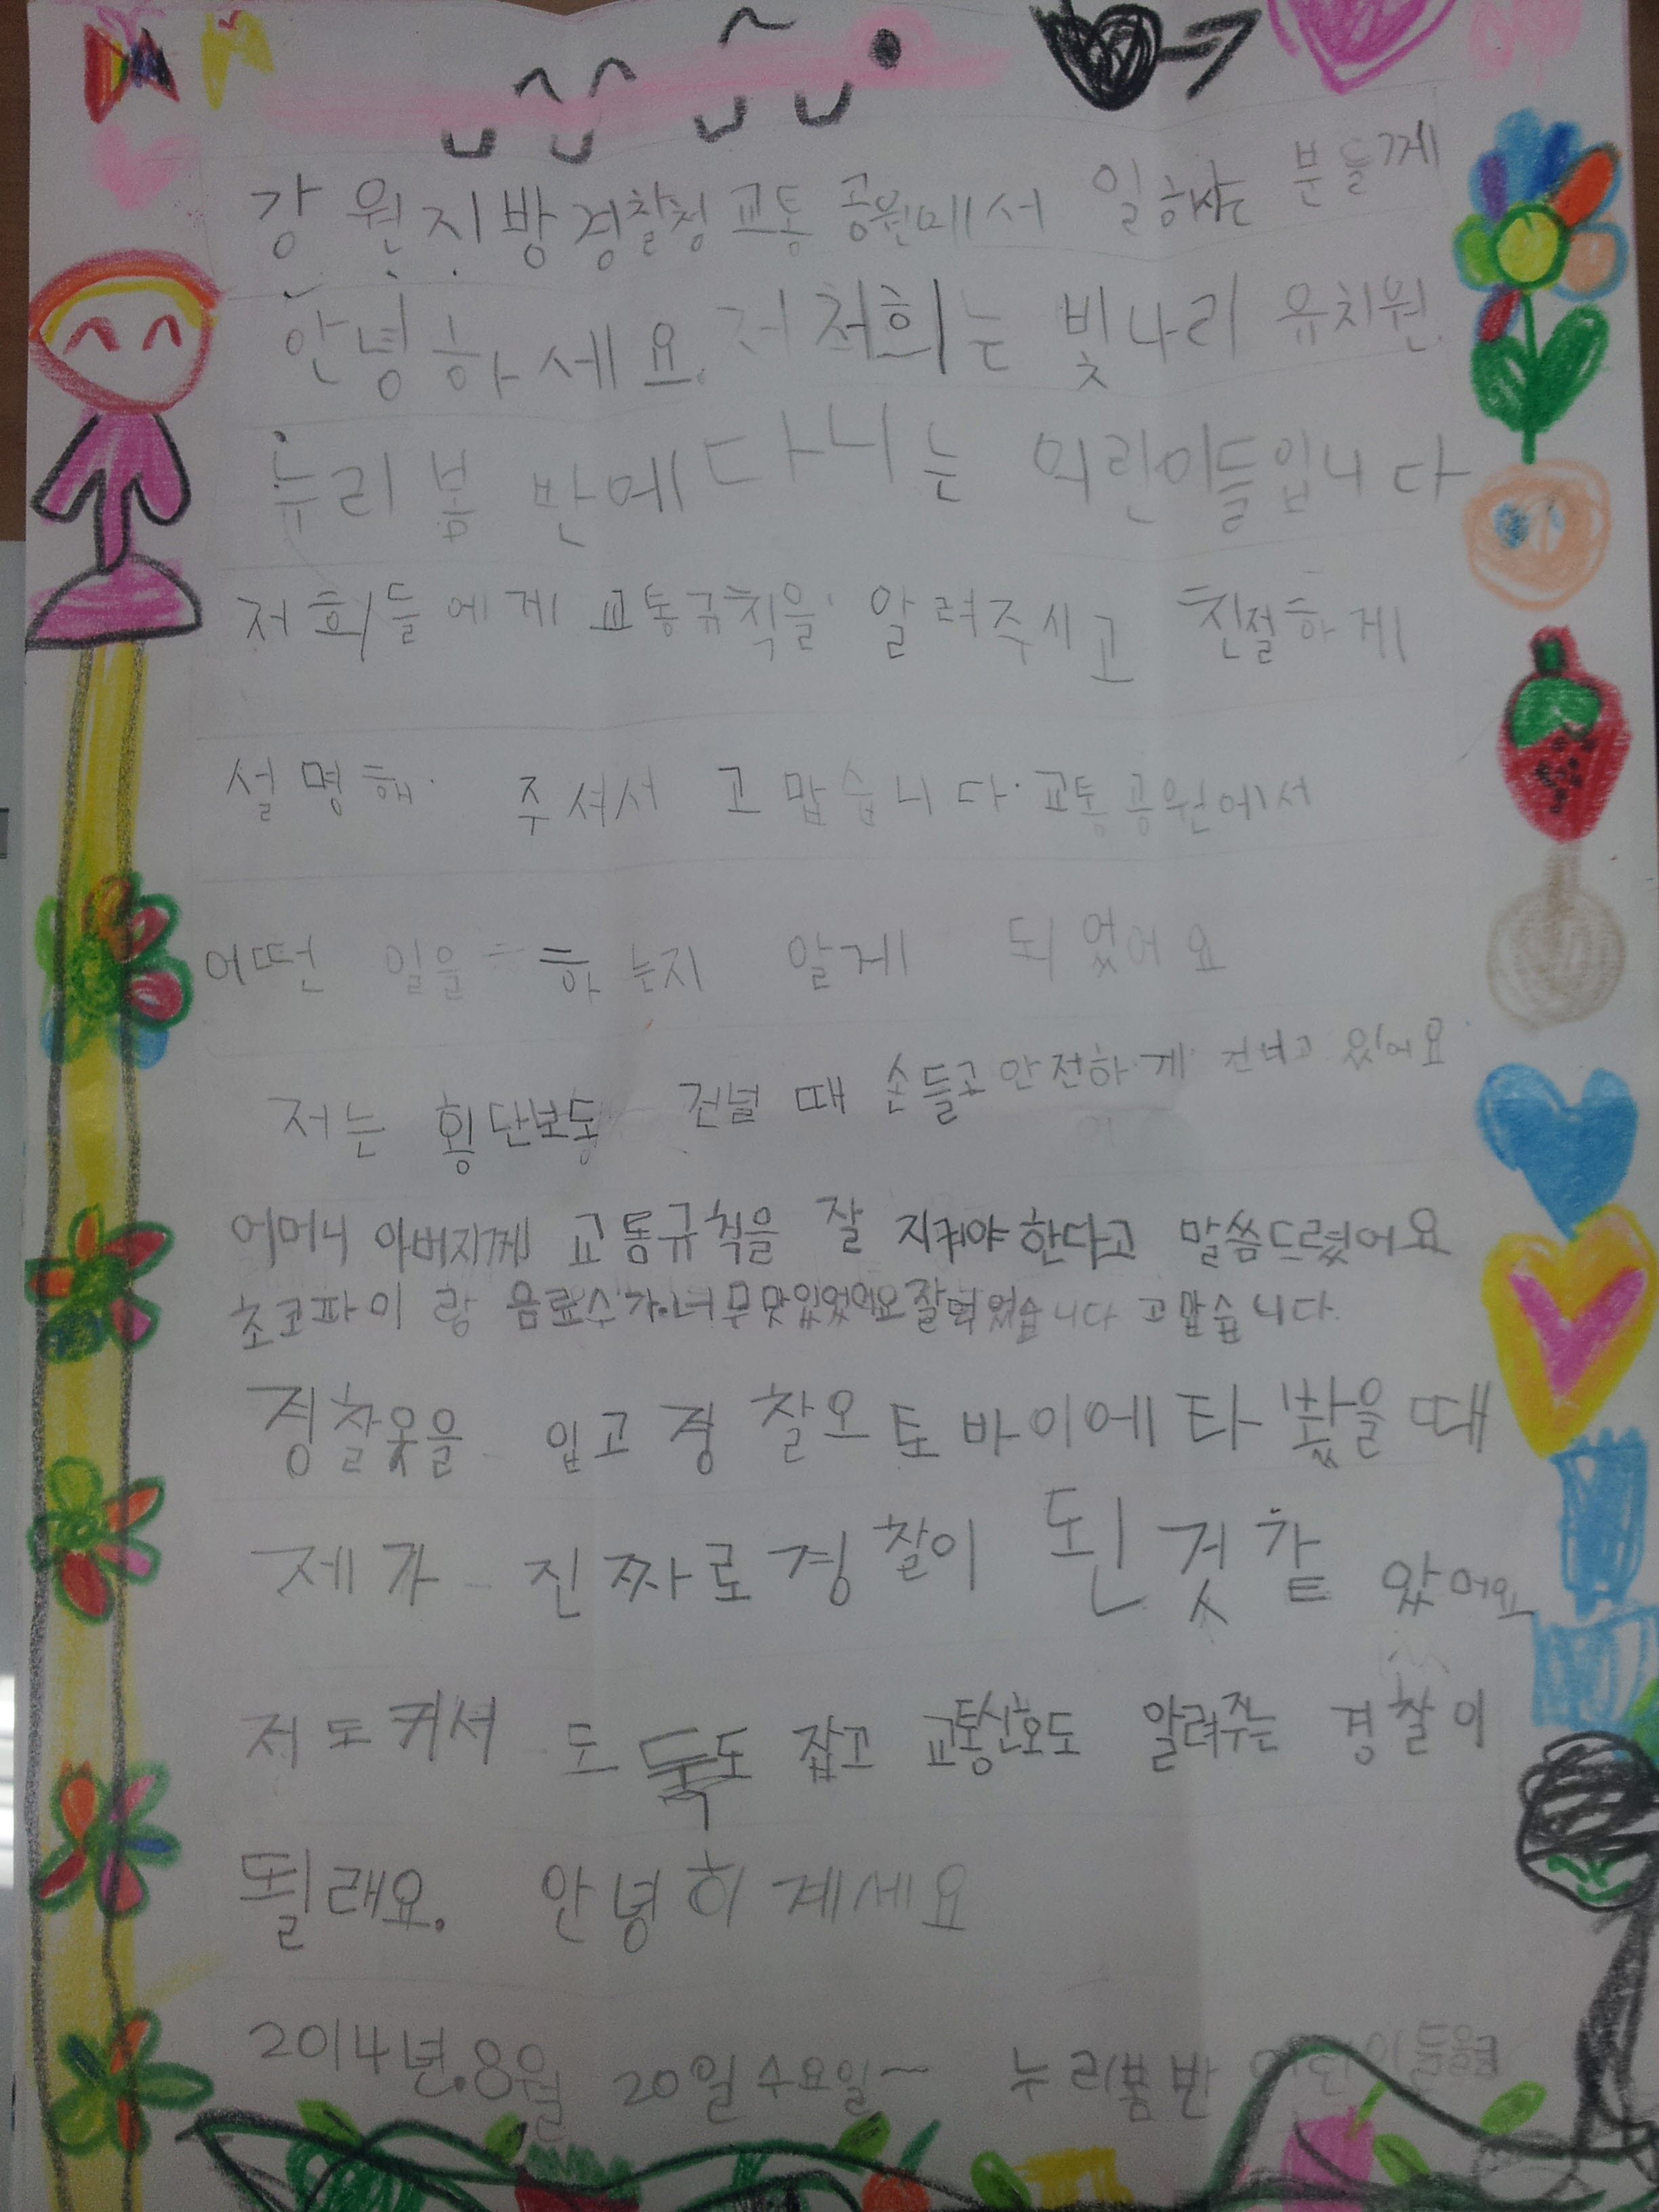 강원지방경찰청교통 공원에서 일하는 분들께
안녕하세요. 저희는 빛나리 유치원
누리봄 반에 다니는 어린이들입니다
저희들에게 교통규칙을 알려주시고 친절하게
설명해 주셔서 고맙습니다. 교통공원에서
어떤 일을 하는지 알게 되었어요
저는 횡단보동 건널 때 손들고 안전하게 건너고 있어요
어머니 아버지께 교통규칙을 잘 지켜야한다고 말씀드렸어요
초코파이랑 음료수가너무맛있었어요잘먹었습니다 고맙습니다.
경찰옷을 입고 경찰오토바이에 타봤을 때
제가 진짜로 경찰이 된것같았어요
저도커셔 도둑도 잡고 교통신호도 알려주는 경찰이
될래요. 안녕히계세요
2014년.8월 20일 수요일~ 누리봄반